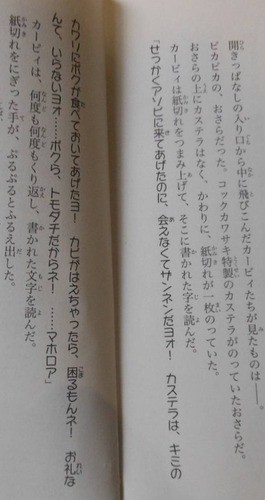 開きっぱなしの入り口から中に飛びこんだカービィたちが見たものは――。
ピカピカの、おさらだった。コックカワサキ特製のカステラがのっていたおさらだ。
おさらの上にカステラはなく、かわりに、紙切れが一枚のっていた。
カービィは紙切れをつまみ上げて、そこに書かれた字を読んだ。
「せっかくアソビに来てあげたのに、会えなくてザンネンだヨォ！　カステラは、キミの
カワリにボクが食べておいてあげたヨ！　カビがはえちゃったら、困るもんネ！　お礼な
んて、いらないヨォ……ボクら、トモダチだからネ！　……マホロア」
カービィは、何度も何度もくり返し、書かれた文字を読んだ。
紙切れをにぎった手が、ぷるぷるとふるえ出した。